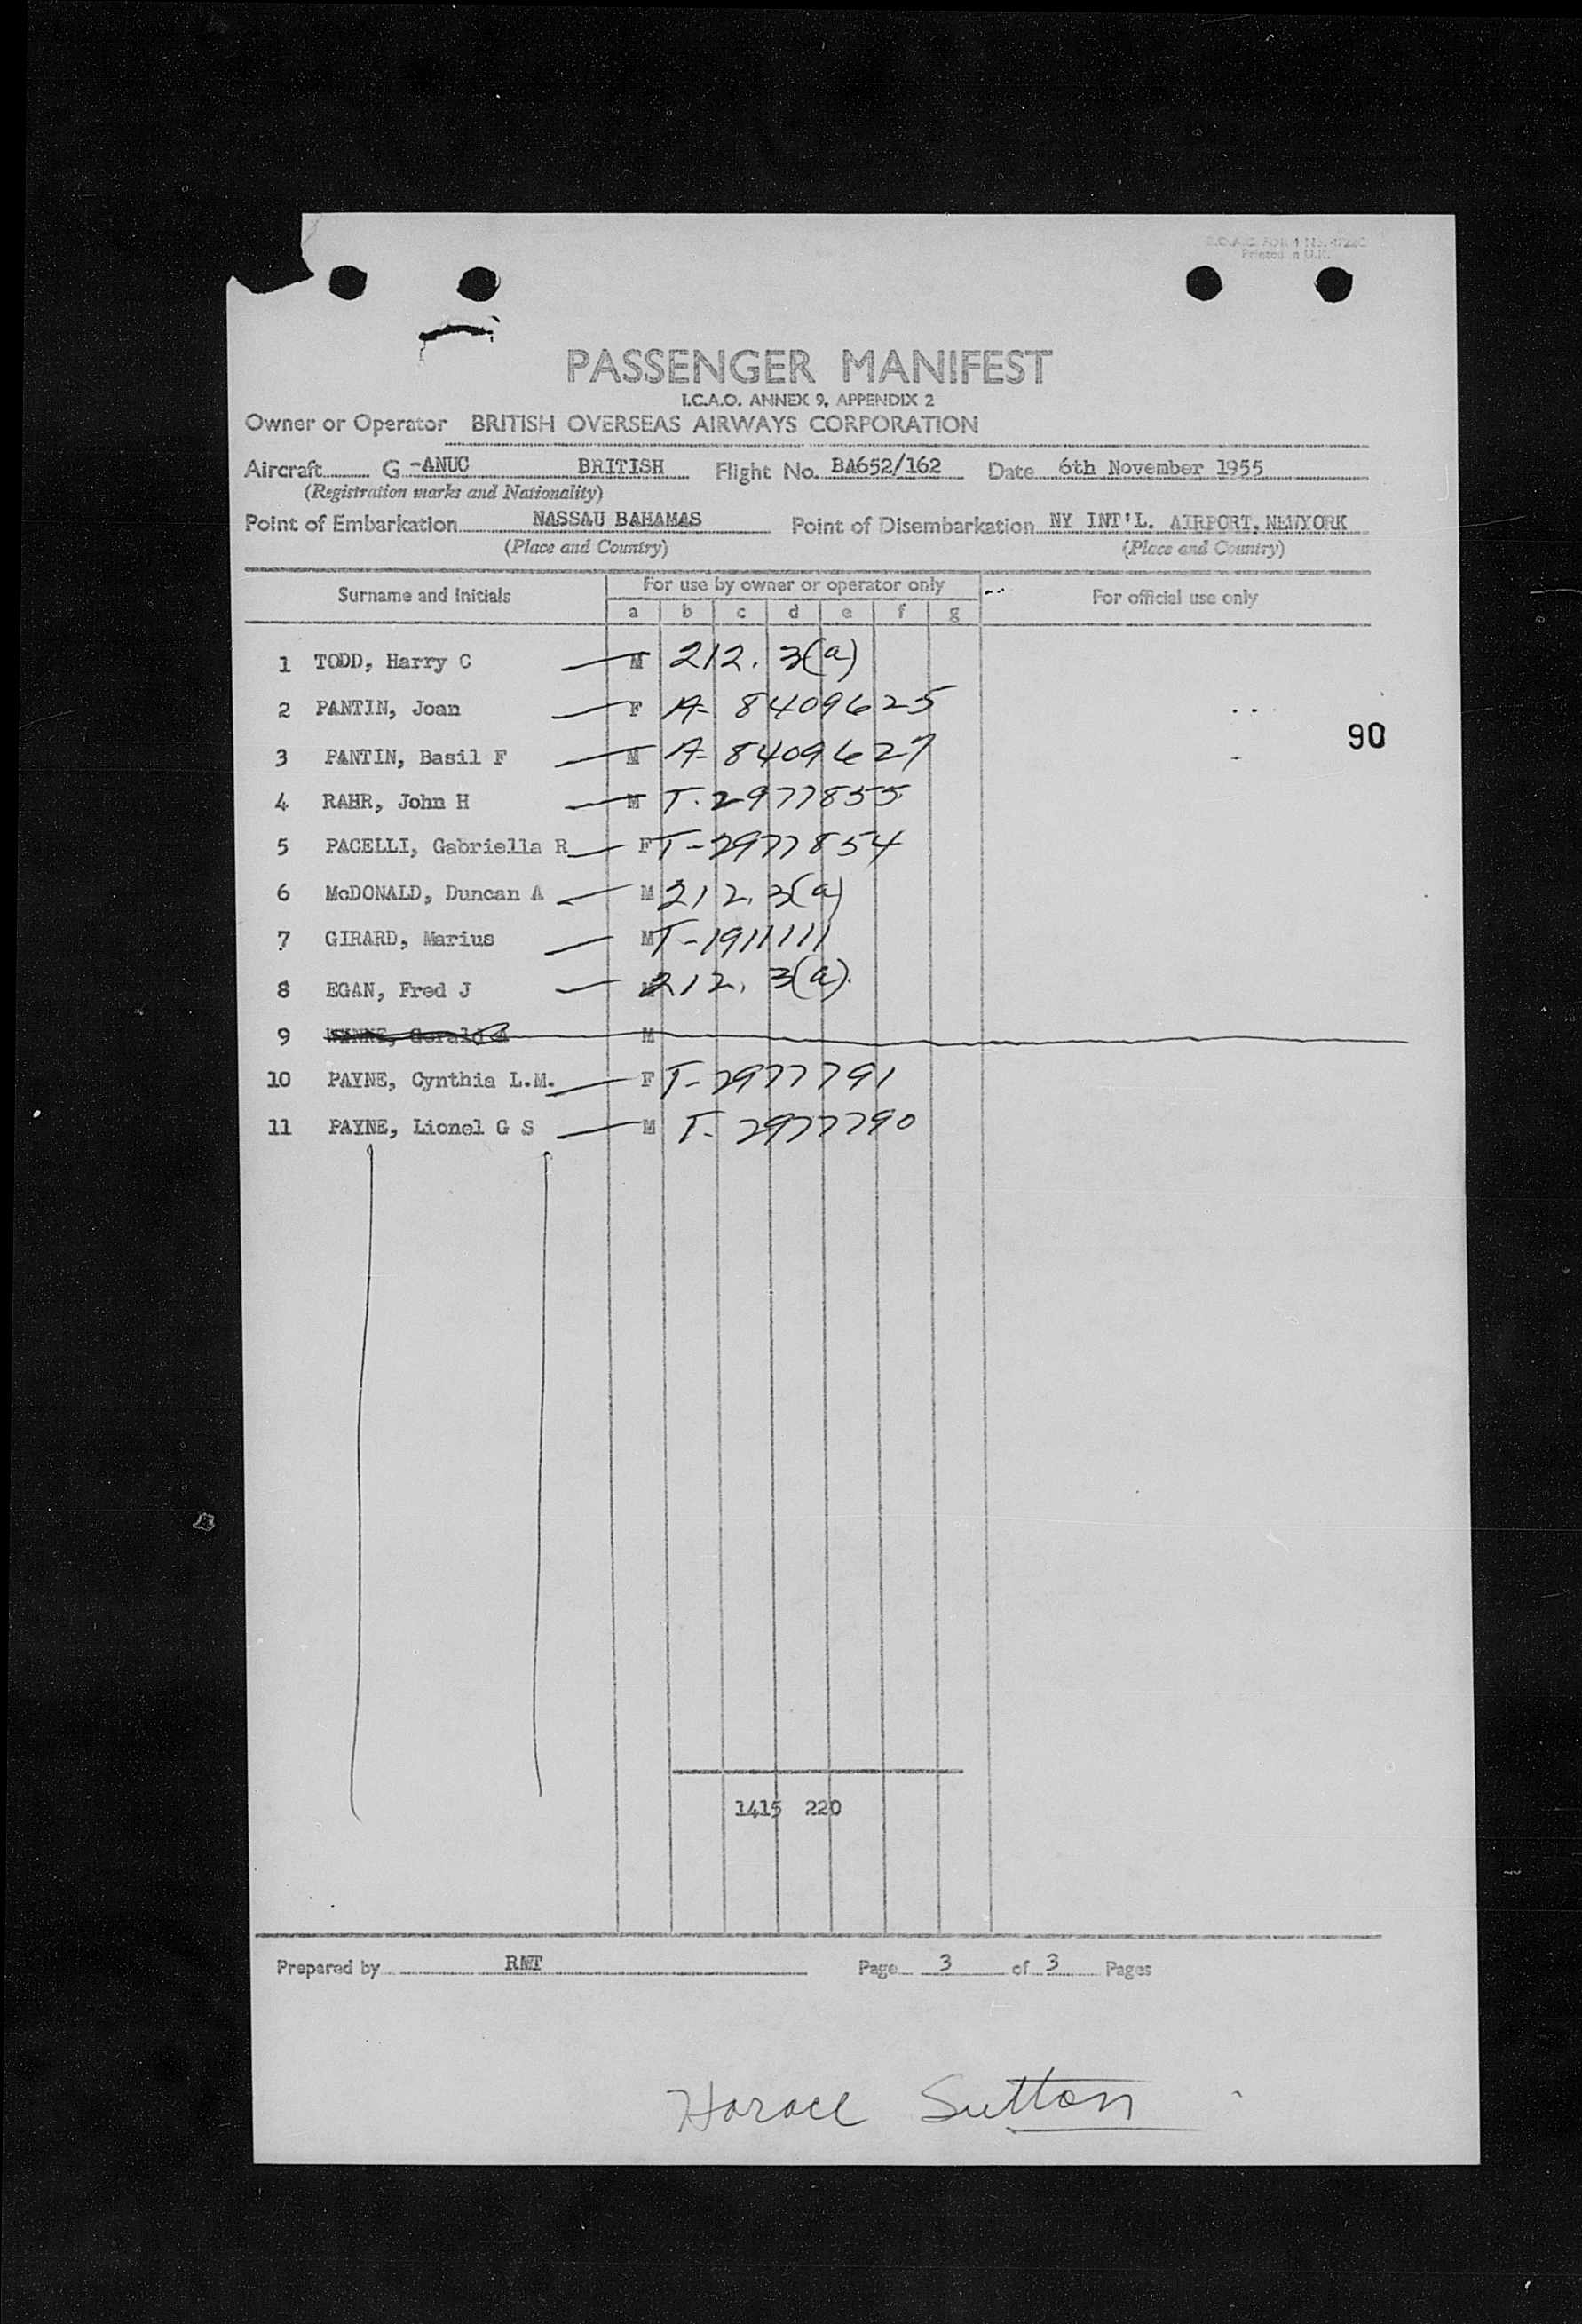 Printed in U.K.
PASSENGER MANIFEST
I.C.A.O. ANNEX 9, APPENDIX 2
Owner or Operator BRITISH OVERSEAS AIRWAYS CORPORATION
Aircraft G -ANUC BRITISH Flight No. BA652/162 Date 6th November 1955
(Registration marks and Nationality)
Point of Embarkation NASSAU BAHAMAS Point of Disembarkation NY INT'L. AIRPORT, NEWYORK
(Place and Country) (Place and Country)
Surname and Initials For use by owner or operator only For official use only
a b c d e f g
1 TODD, Harry C M 212. 3(a)
2 PANTIN, Joan F A- 8409625
90
3 PANTIN, Basil F M A- 8409627
4 RAHR, John H M T-2977855
5 PACELLI, Gabriella R F T-2977854
6 McDONALD, Duncan A M 212. 3(a)
7 GIRARD, Marius M T-1911111
8 EGAN, Fred J 212. 3(a)
9 Gerald A M
10 PAYNE, Cynthia L.M. F T-2977791
11 PAYNE, Lionel G S M T-2977790
1415 220
Prepared by RMT Page 3 of 3 Pages
Horace Sutton